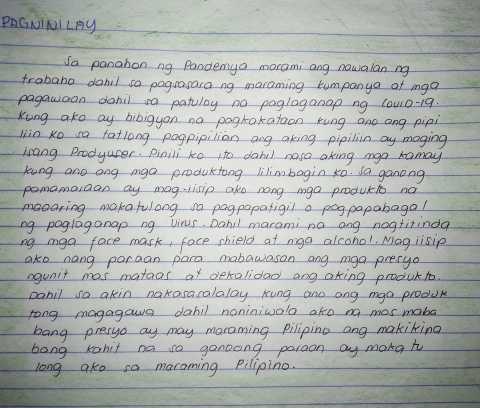 PAGNINILAY
Sa panahon ng Pandemya marami ang nawalan ng
trabaho dahil sa pagsasara ng maraming kumpanya at mga
pagawaan dahil sa patuloy na paglaganap ng Covid-19.
Kung ako ay bibigyan na pagkakataon kung ano ang pipi
liin ko sa tatlong pagpipilian ang aking pipiliin ay maging
isang Prodyuser. Pinili ko ito dahil nasa aking mga kamay
kung ano ang mga produktong lilimbagin ko. Sa ganong
pamamaraan ay mag-iisip ako nang mga produkto na
maaaring makatulong sa pagpapatigil o pagpapabagal
ng paglaganap ng Virus. Dahil marami na ang nagtitinda
ng mga face mask, face shield at mga alcohol. Mag iisip
ako nang paraan para mabawasan ang mga presyo
ngunit mas mataas at dekalidad ang aking produkto.
Dahil sa akin nakasasalalay kung ano ang mga produk
tong magagawa dahil naniniwala ako na mas maba
bang presyo ay may maraming Pilipino ang makikina
bang kahit na sa ganoong paraan ay maka tu
long ako sa maraming Pilipino.